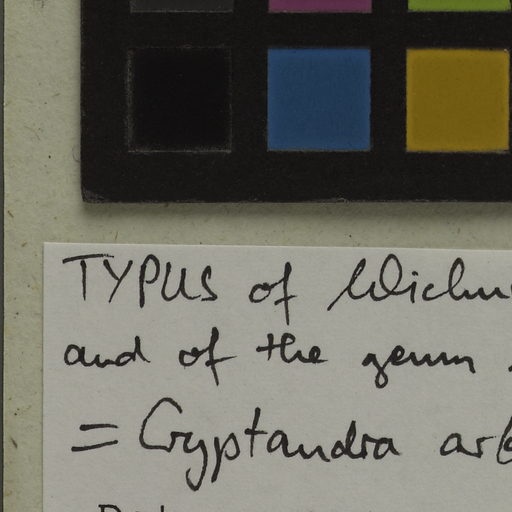 TYPUS of Wichu
and of the genus
= Cryptandra arb